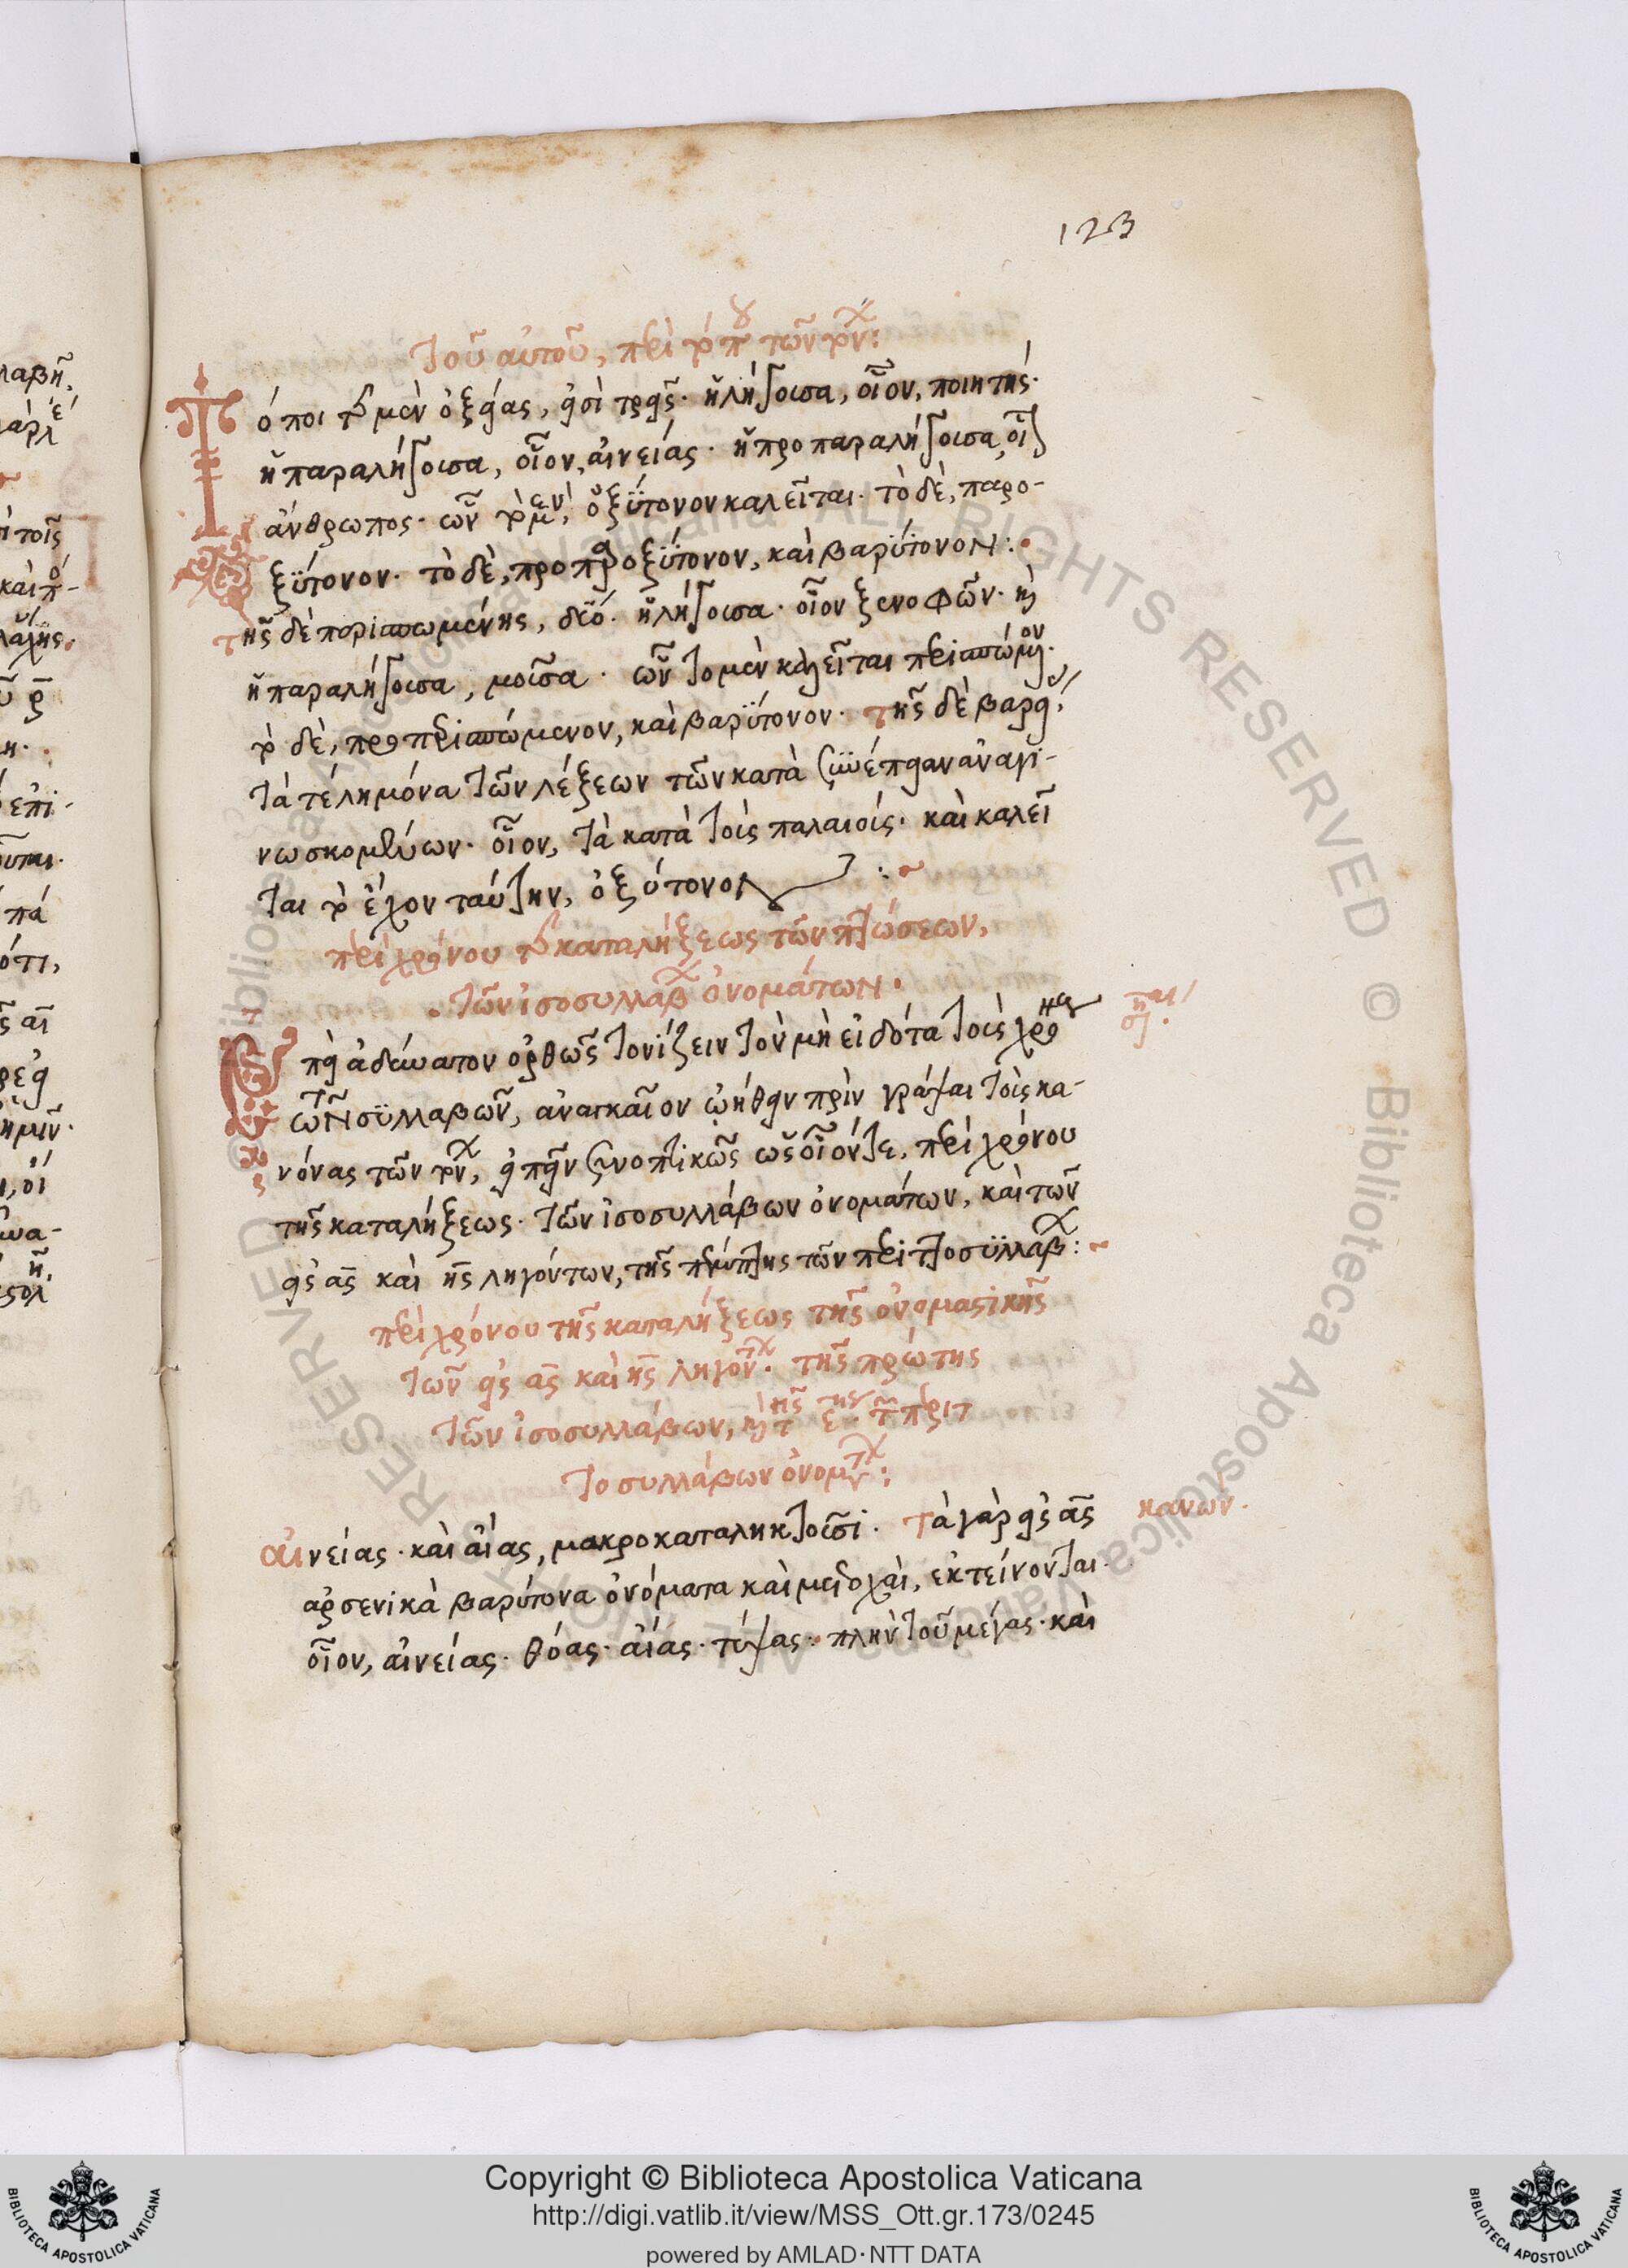 123
Τοῦ αὐτοῦ, περὶ τόπου τῶν τόνων:
Τόποι τῆς μὲν ὀξείας, εἰσὶ τρεῖς· ἡ λήγουσα, οἷον, ποιητής·
ἡ παραλήγουσα, οἷον, αἰνείας· ἡ προπαραλήγουσα, οἷον
ἄνθρωπος· ὧν τὸ μὲν, ὀξύτονον καλεῖται· τὸ δὲ, παρο-
ξύτονον· τὸ δὲ, προπαροξύτονον, καὶ βαρύτονον:
τῆς δὲ περισπωμένης, δύο· ἡ λήγουσα· οἷον ξενοφῶν· καὶ
ἡ παραλήγουσα, μοῦσα· ὧν τὸ μὲν καλεῖται περισπώμενον·
τὸ δὲ, προπερισπώμενον, καὶ βαρύτονον· τῆς δὲ βαρείας,
τὰ τέλη μόνα τῶν λέξεων τῶν κατὰ συνέπειαν ἀναγι-
νωσκομένων· οἷον, τὰ κατὰ τοὺς παλαιούς· καὶ καλεῖ
ται τὸ ἔχον ταύτην, ὀξύτονον:
περὶ χρόνου τῆς καταλήξεως τῶν πτώσεων,
τῶν ἰσοσυλλάβων ὀνομάτων.
Ἐπεὶ ἀδύνατον ὀρθῶς τονίζειν τὸν μὴ εἰδότα τοὺς χρόνους
τῶν συλλαβῶν, ἀναγκαῖον ᾠήθην πρὶν γράψαι τοὺς κα-
νόνας τῶν τόνων, εἰπεῖν συνοπτικῶς ὡς οἷόν τε, περὶ χρόνου
τῆς καταλήξεως· τῶν ἰσοσυλλάβων ὀνομάτων, καὶ τῶν
εἰς ας καὶ ης ληγόντων, τῆς πέμπτης τῶν περιττοσυλλάβων:
περὶ χρόνου τῆς καταλήξεως τῆς ὀνομαστικῆς
τῶν εἰς ας καὶ ης ληγόντων· τῆς πρώτης
τῶν ἰσοσυλλάβων, καὶ τῆς ε´ης τῶν περιτ
τοσυλλάβων ὀνομάτων:
αἰνείας· καὶ αἴας, μακροκαταληκτοῦσι· τὰ γὰρ εἰς ας
κανών·
ἀρσενικὰ βαρύτονα ὀνόματα καὶ μετοχαὶ, ἐκτείνονται·
οἷον, αἰνείας· θόας· αἴας· τύψας· πλὴν τοῦ μέγας· καὶ
Copyright © Biblioteca Apostolica Vaticana
http://digi.vatlib.it/view/MSS_Ott.gr.173/0245
powered by AMLAD·NTT DATA